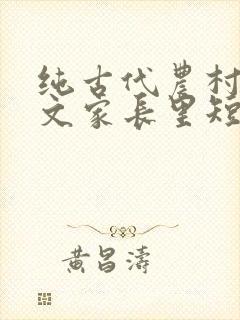 纯古代农村
文家长里短
黄昌涛